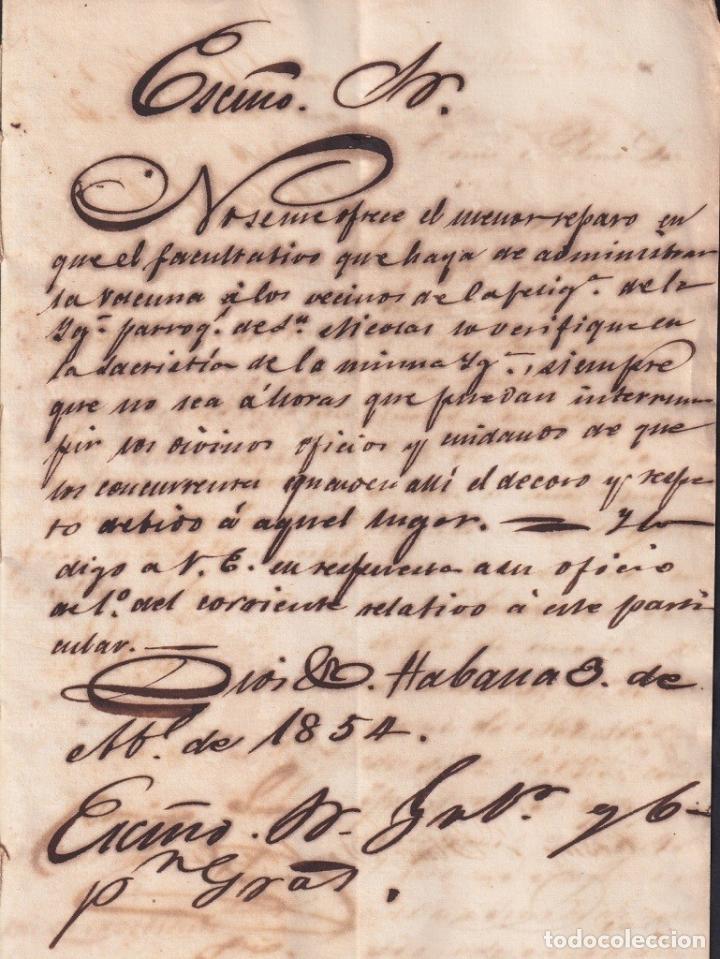 Escmo. Sr.
No se me ofrece el menor reparo en
que el facultativo que haya de administrar
la vacuna á los vecinos de la felig.ª de la
Yg.ª parroq.l de S.n Nicolas lo verifique en
la sacristía de la misma Yg.ª, siempre
que no sea á horas que puedan interrum
pir los divinos oficios y cuidando de que
los concurrentes guarden allí el decoro y respe
to debido á aquel lugar. — Y lo
digo a V. E. en respuesta a su oficio
de 1.º del corriente relativo á este parti
cular. —
Dios &. Habana 3. de
Ab.l de 1854.
Escmo. Sr. Gob.or y C
p.n Gral.
todocoleccion
todocoleccion.net